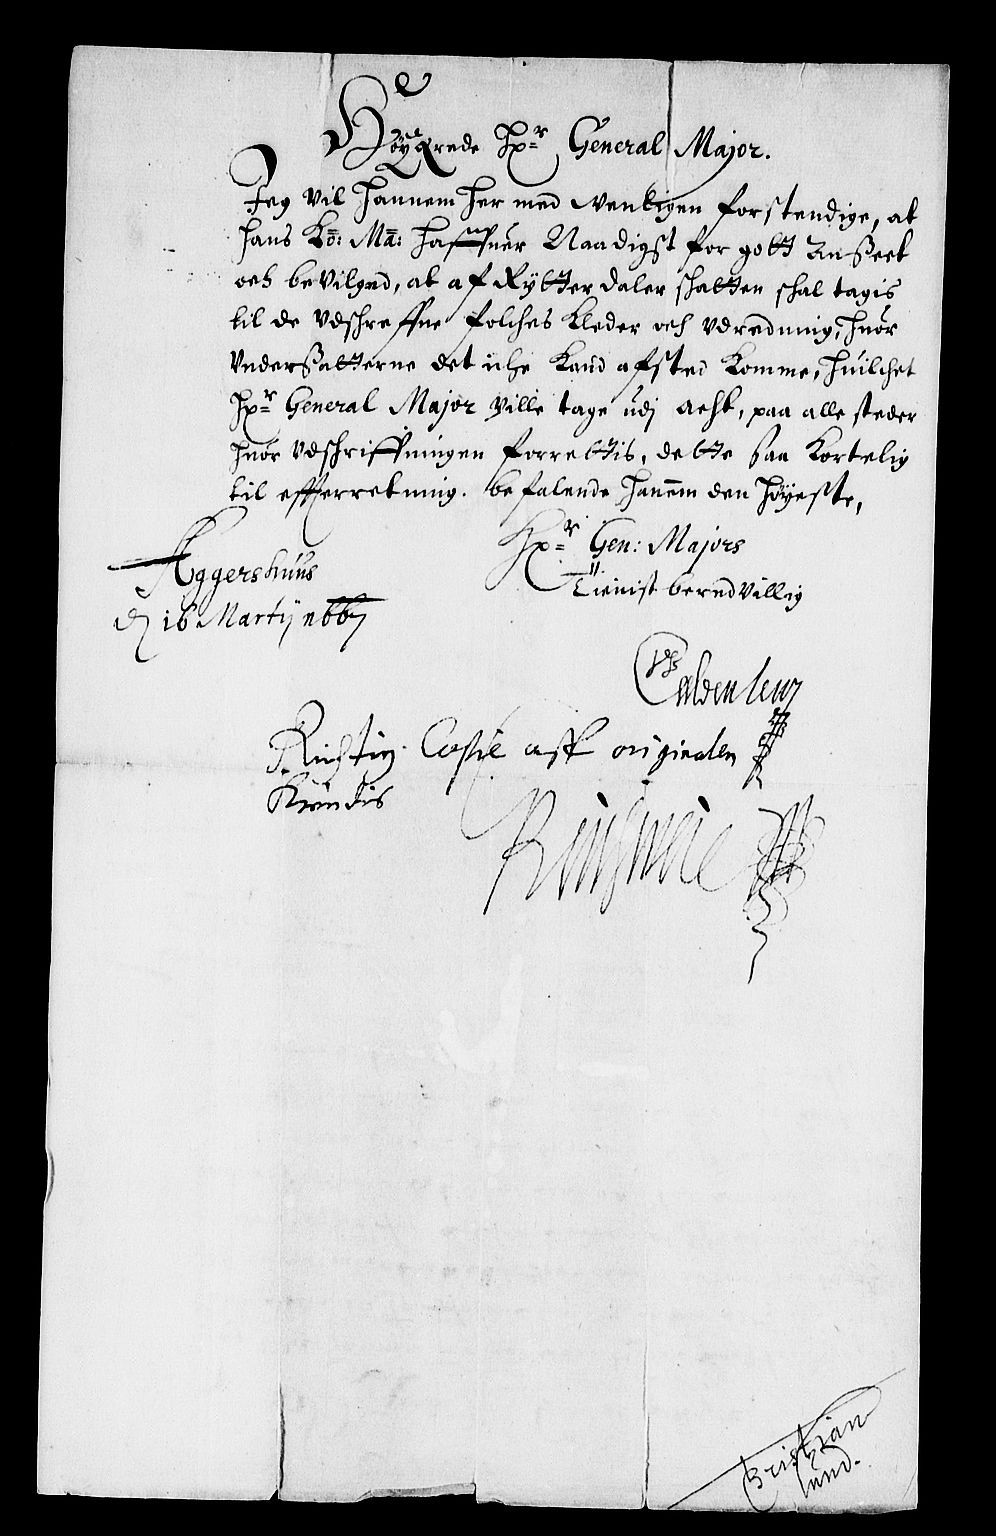 HøyÆrede Hr: General Major.
Jeg vil hannem her med venligen forstendige, at
hans Ko: Ma: haffuer Naadigst for gott Ansseet
och bevilget, at af Rytter daler skatten skal tagis
til de vdskreffne folches kleder och vdredning, huor
vndersatterne det iche kand afsted komme, huilchet
Hr: General Major ville tage udj acht, paa alle steder
huor vdschriffningen forrettis, dette saa kortelig
til efterretning. befalende hannem den høyeste,
Aggershuus
d 16 Martij 1667
Hr: Gen: Majors
Tienist beredvillig
Caldenleuj
Richtig Copie aff originalen
Kiendis
Christian
lund.